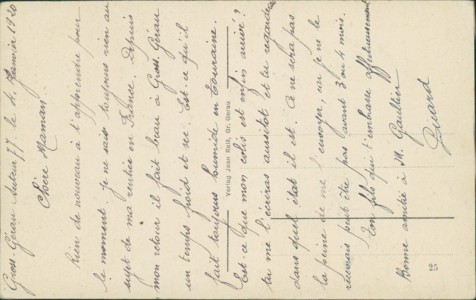 Gross Gerau Secteur 77 le 4 Janvier 1920
Chère Maman
Rien de nouveau à t'apprendre pour
le moment. Je ne sais toujours rien au
sujet de ma rentrée en France. Depuis
mon retour il fait beau à Gross Gérau
un temps froid et sec. Est-ce qu'il
fait toujours humide en Touraine.
Est-ce que mon colis est enfin arrivé?
tu me l'écriras aussitôt et tu regarderas
dans quel état il est. Ce ne sera pas
la peine de me l'envoyer, car je ne le
recevrais peut être pas avant 3 ou 4 mois.
Ton fils qui t'embrasse affectueusement
Bonne amitié à M. Gaultier
Verlag Jean Ruhl, Gr. Gerau
25